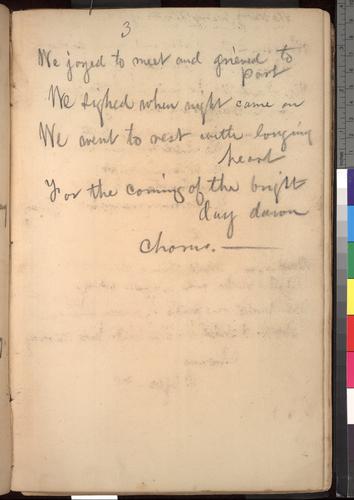 3
We joyed to meet and grieved to
part
We sighed when night came on
We went to rest with longing
heart
For the coming of the bright
day dawn
Chorus.